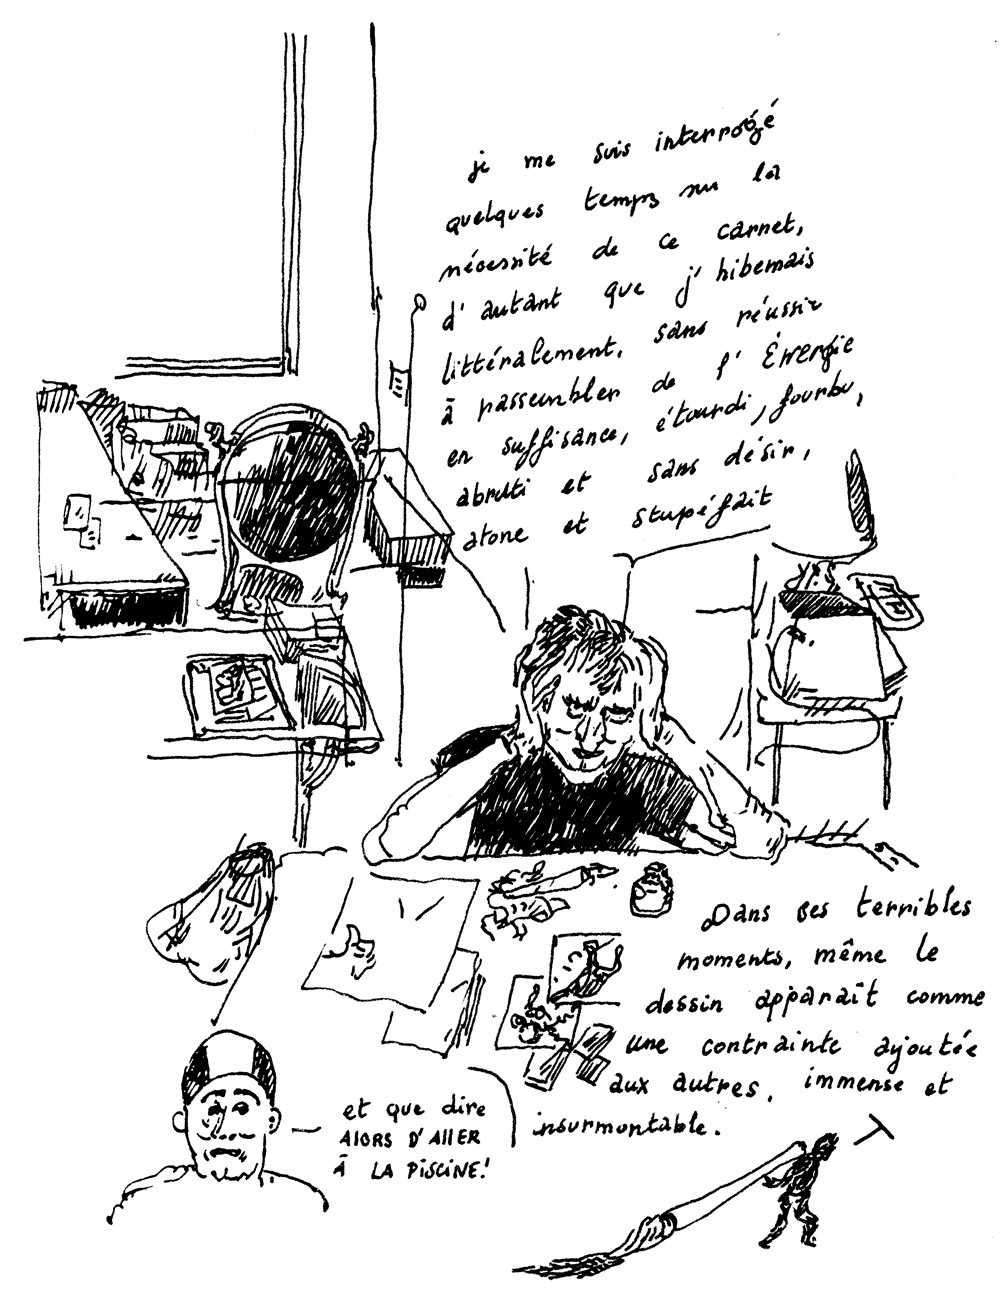 je me suis interrogé
quelques temps sur la
nécessité de ce carnet,
d'autant que j'hibernais
littéralement, sans réussir
à rassembler de l'Énergie
en suffisance, étourdi, fourbu,
abruti et sans désir,
atone et stupéfait
Dans ces terribles
moments, même le
dessin apparaît comme
une contrainte ajoutée
aux autres, immense et
insurmontable.
et que dire
ALORS D'ALLER
À LA PISCINE!